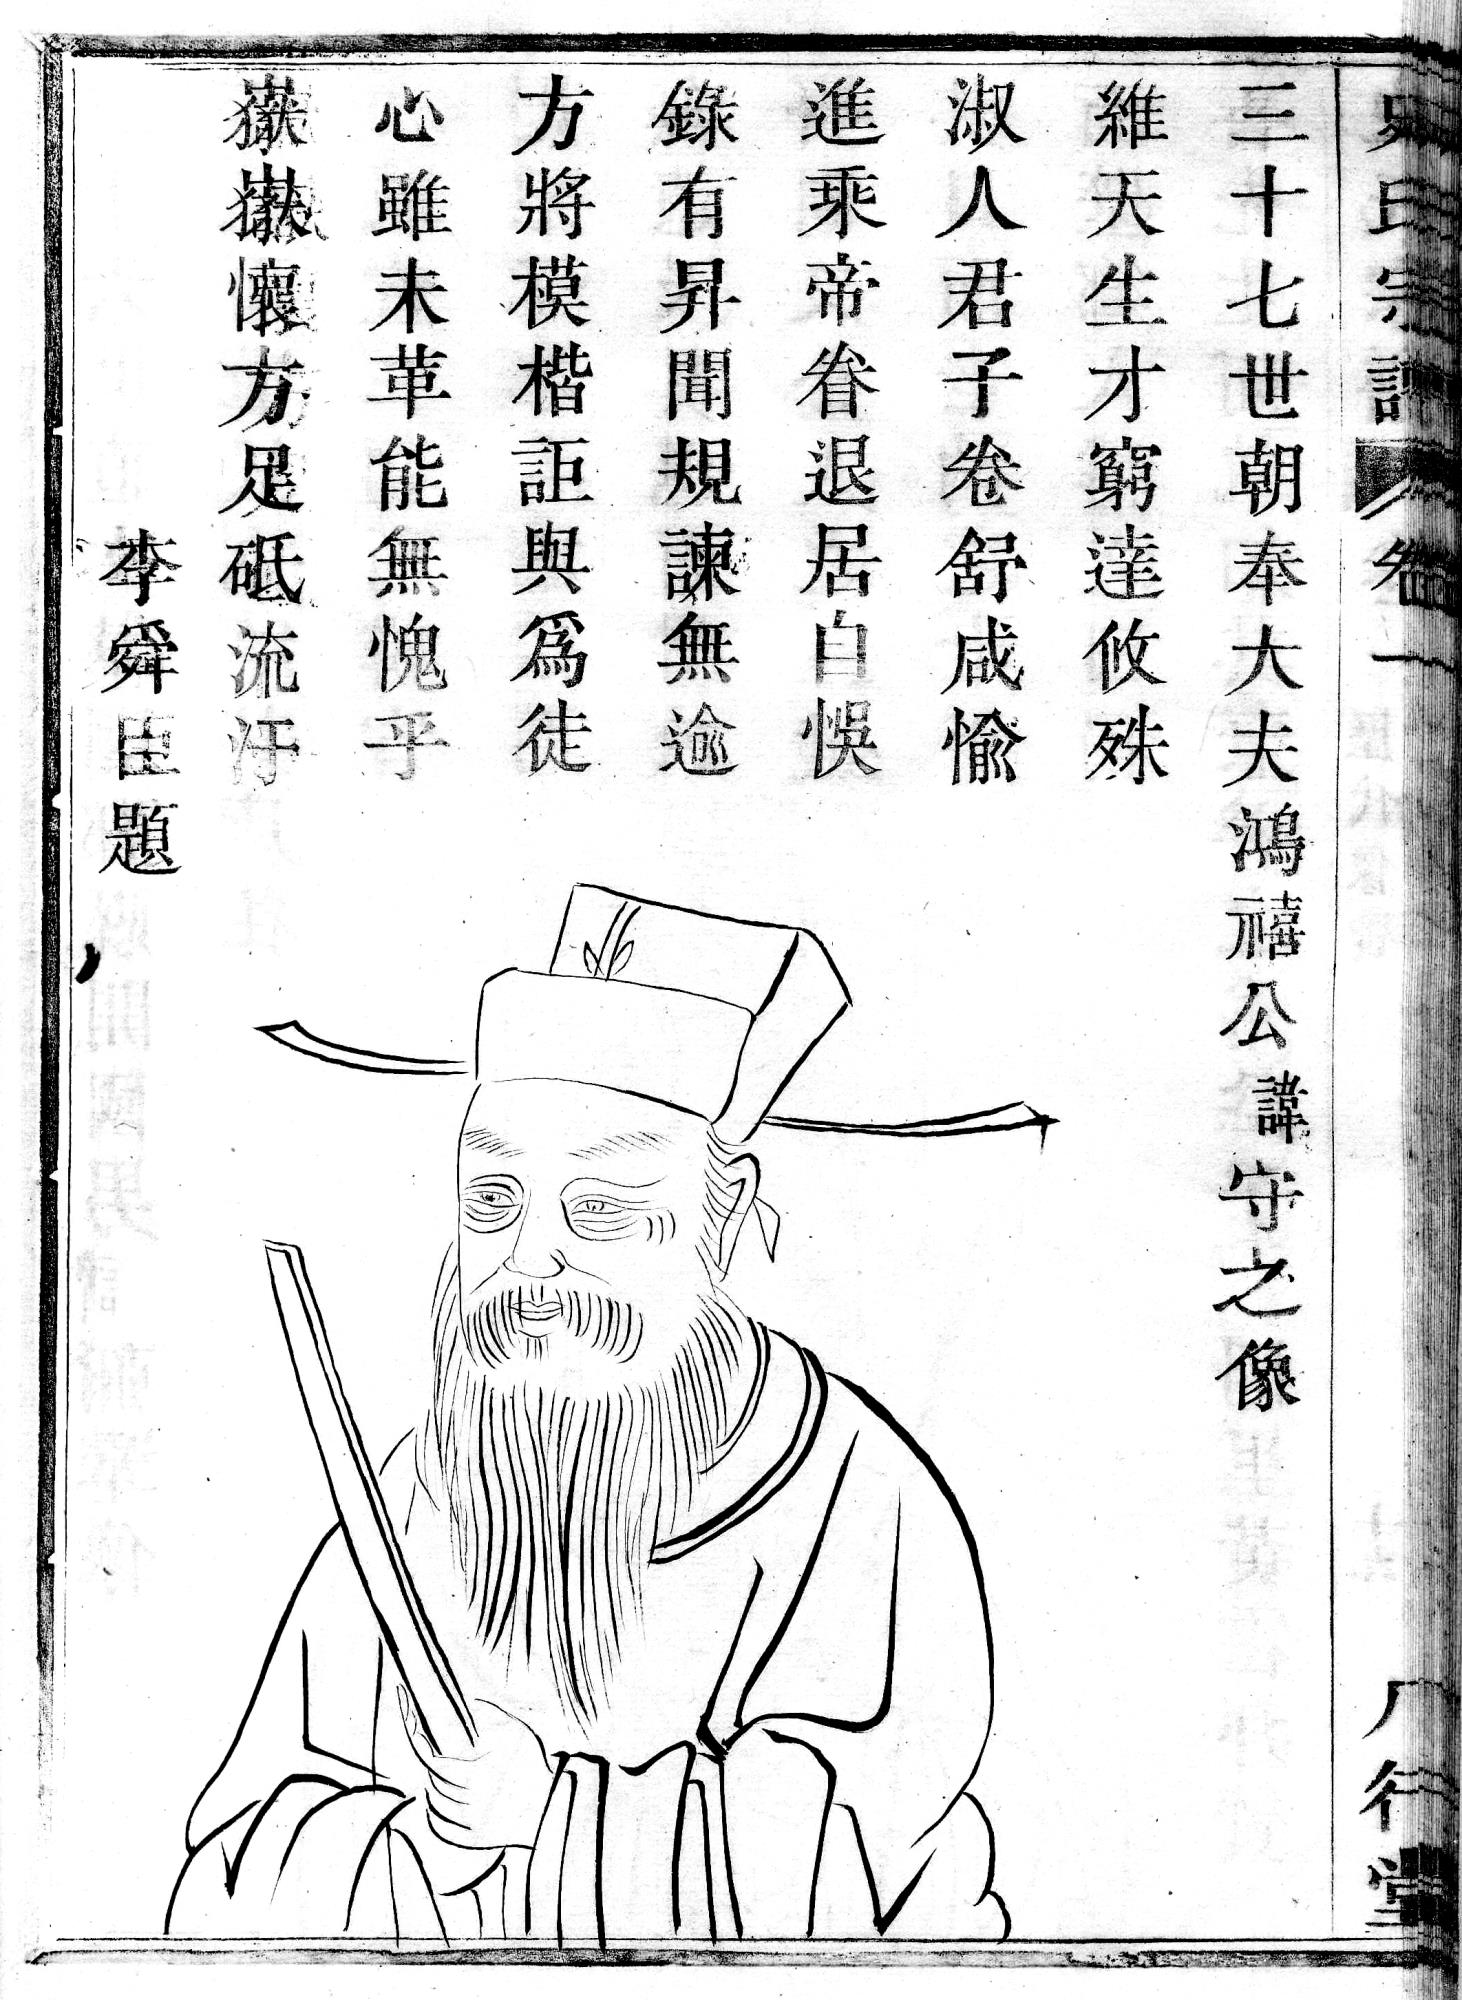 三十七世朝奉大夫鴻禧公諱守之像
維天生才窮達攸殊
淑人君子卷舒咸愉
進乘帝眷退居自悞
錄有昇聞規諫無逾
方將模楷詎與爲徒
心雖未革能無愧乎
嶽嶽懷方足砥流汙
李舜臣題
氏宗譜
卷一
行堂